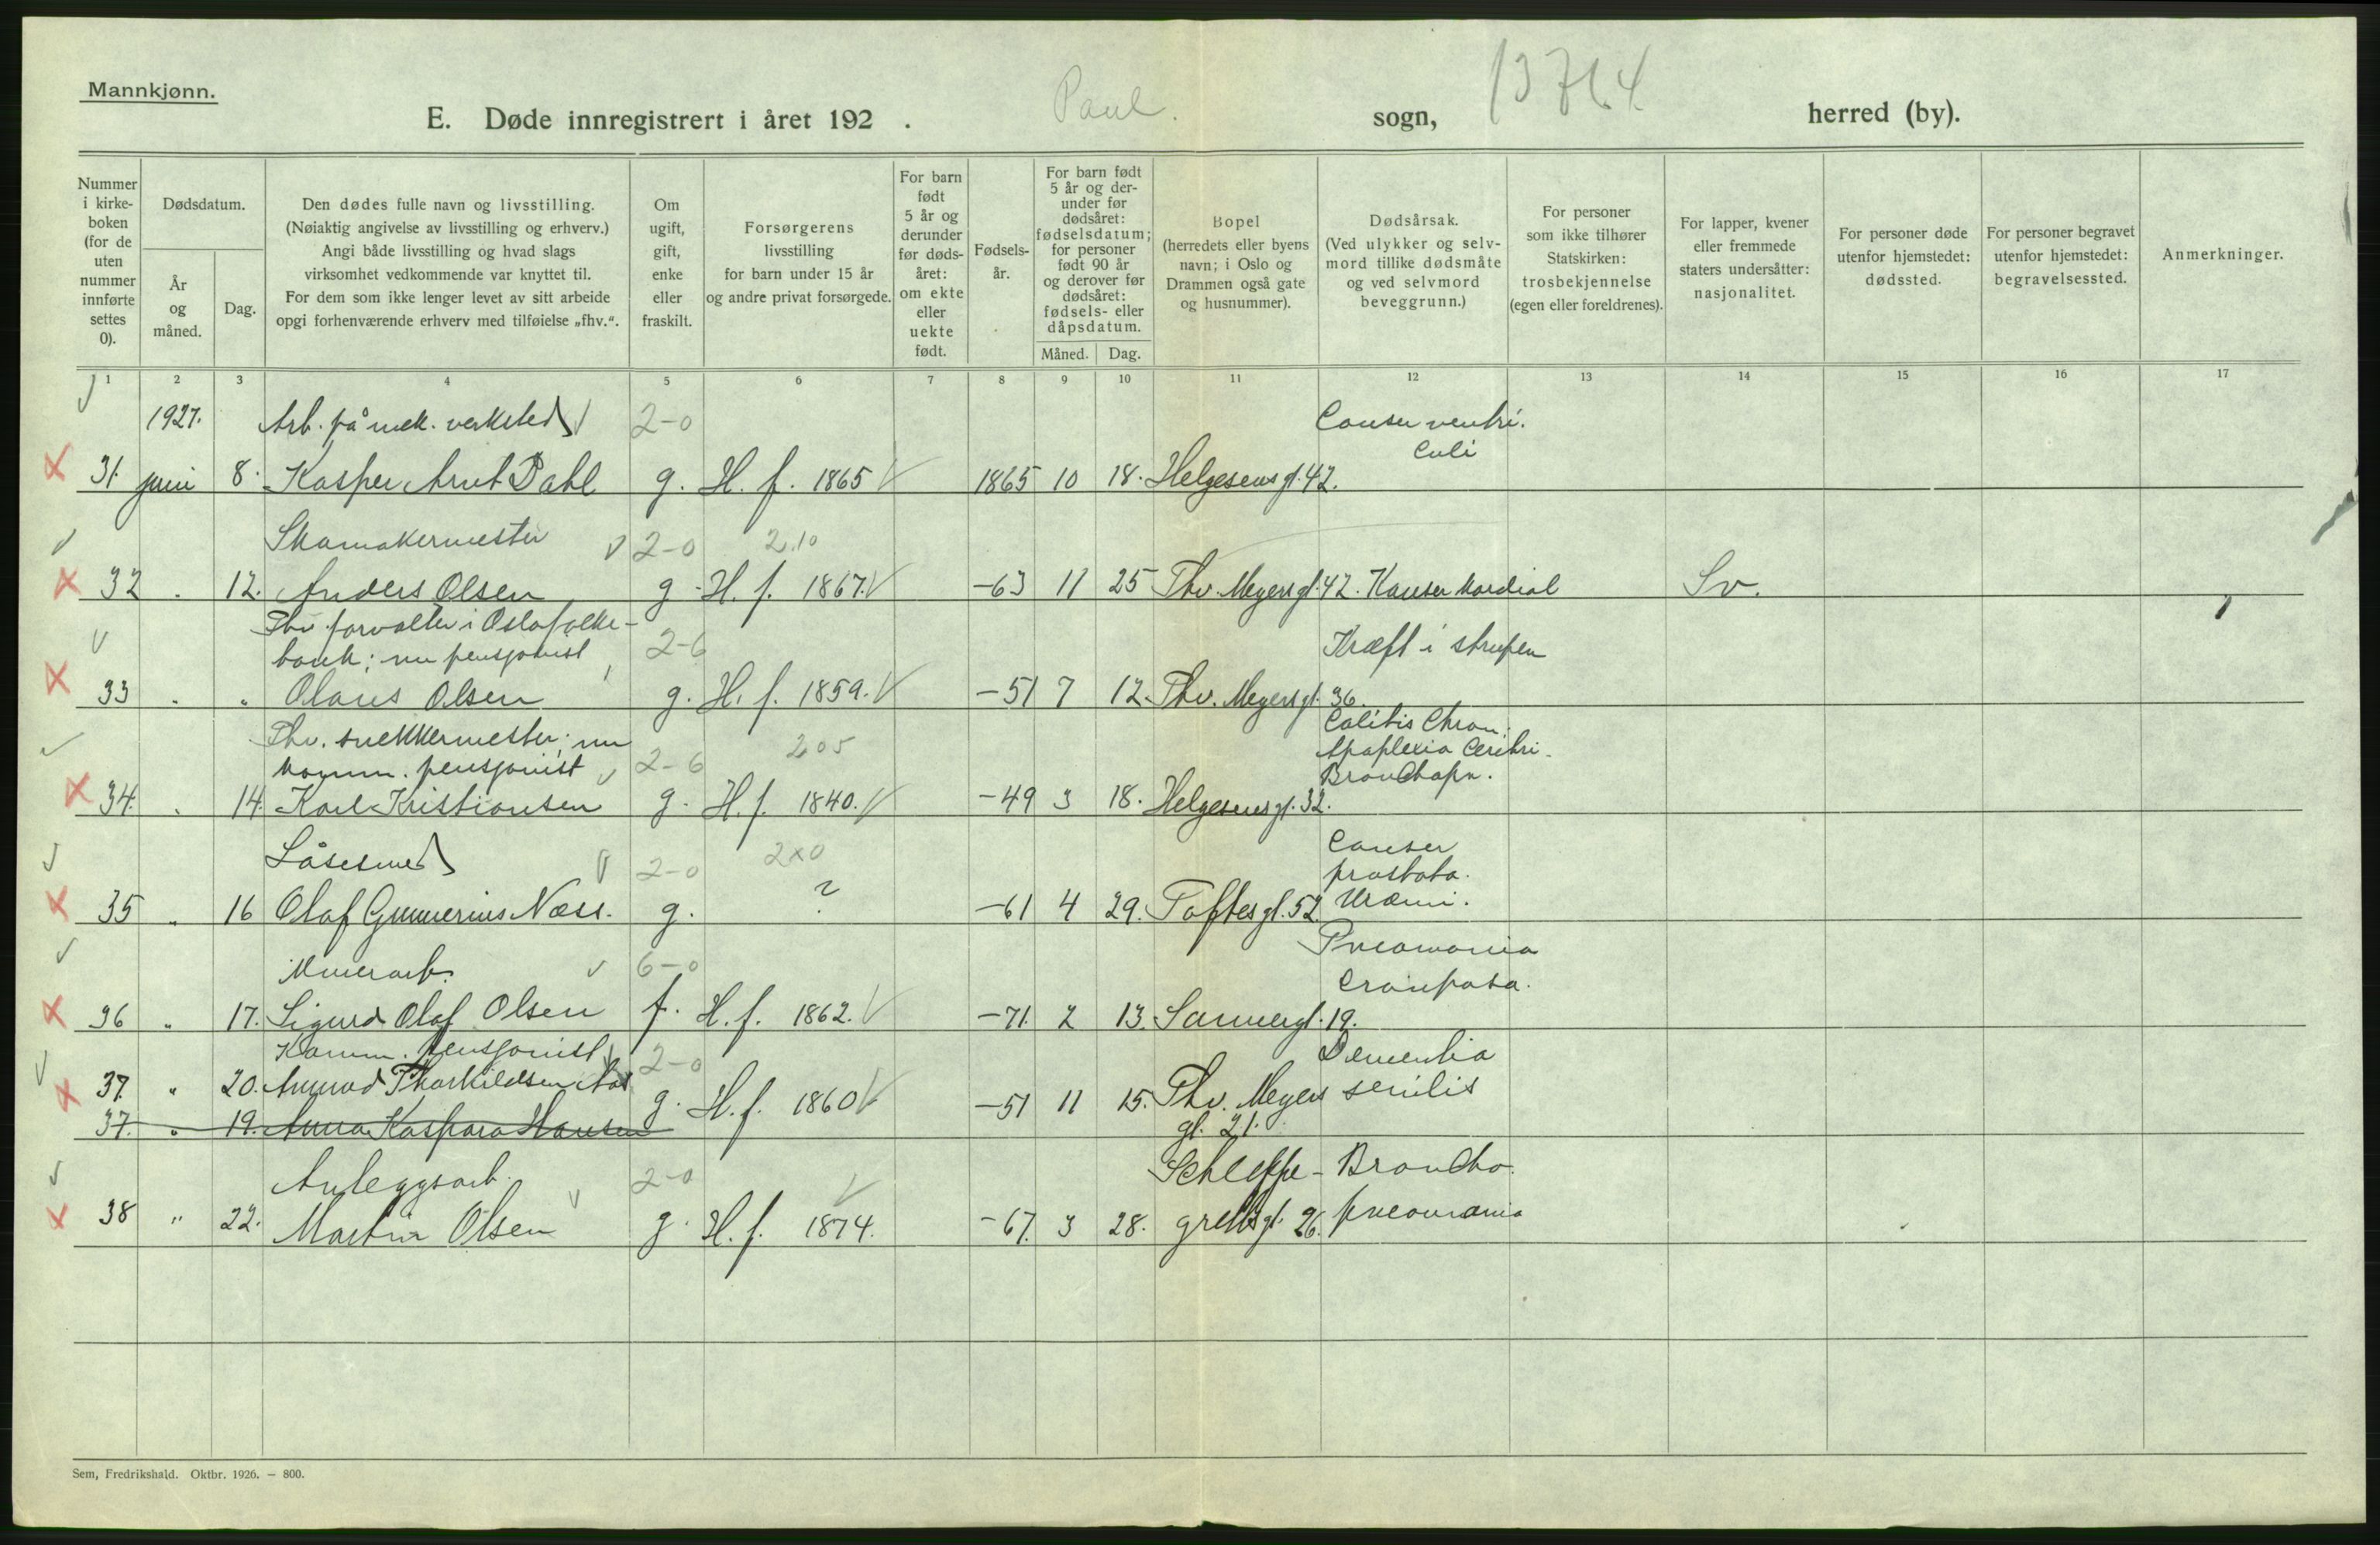 Mannkjønn.
E. Døde innregistrert i året 192 . Paul. sogn, herred (by).
Nummer i kirke-boken (for de uten nummer innførte settes 0).
Dødsdatum.
År og måned.
Dag.
Den dødes fulle navn og livsstilling.
(Nøiaktig angivelse av livsstilling og erhverv.)
Angi både livsstilling og hvad slags
virksomhet vedkommende var knyttet til.
For dem som ikke lenger levet av sitt arbeide
opgi forhenværende erhverv med tilføielse „fhv.“.
Om ugift, gift, enke eller fraskilt.
Forsørgerens
livsstilling
for barn under 15 år
og andre privat forsørgede.
For barn født 5 år og derunder før døds-året: om ekte eller uekte født.
Fødsels-år.
For barn født 5 år og der-under før dødsåret: fødselsdatum; for personer født 90 år og derover før dødsåret: fødsels- eller dåpsdatum.
Måned. Dag.
Bopel
(herredets eller byens
navn; i Oslo og
Drammen også gate
og husnummer).
Dødsårsak.
(Ved ulykker og selv-
mord tillike dødsmåte
og ved selvmord
beveggrunn.)
For personer
som ikke tilhører
Statskirken:
trosbekjennelse
(egen eller foreldrenes).
For lapper, kvener
eller fremmede
staters undersåtter:
nasjonalitet.
For personer døde
utenfor hjemstedet:
dødssted.
For personer begravet
utenfor hjemstedet:
begravelsessted.
Anmerkninger.
1 2 3 4 5 6 7 8 9 10 11 12 13 14 15 16 17
1927. Arb. på mek. verksted 2-0 Canser ventri.
culi
31. juni 8. Kasper Arnt Dahl g. H. f. 1865 1865 10 18. Helgesens gt. 42.
Skomakermester 2-0 2.10
32 . 12. Anders Olsen g. H. f. 1867. -63 11 25 Thv. Meyers gt. 42. Kanser kardial Sv.
Fhv. forvalter i Oslo folke-
bank; nu pensjonist 2-6 Kræft i strupen
33 . " Olaus Olsen g. H. f. 1859. -51 7 12. Thv. Meyers gt. 36.
Fhv. snekkermester; nu
komm. pensjonist 2-6 205 Colitis Chron.
Apoplexia Cerebri.
Bronchopn.
34. . 14. Karl Kristiansen g. H. f. 1840. -49 3 18. Helgesens gt. 32.
Låsesmed 2-0 2x0 Canser
prostata.
35 " 16 Olaf Gunnerius Næss. g. ? -61 4 29. Toftes gt. 52. Uræmi.
Murerarb. 6-0 Pneomonia
Crouposa.
36 " 17. Sigurd Olaf Olsen f. H. f. 1862. -71. 2 13. Sannergt. 19.
Komm. pensjonist 2-0 Dementia
37. " 20. Amund Thorkildsen Aas g. H. f. 1860 -51 11 15. Thv. Meyers senilis
37. " 19. Anna Kaspara Hansen gt. 21.
Anleggsarb. 2-0 Schleppe- Broncho.
38 " 22. Martin Olsen g. H. f. 1874. -67. 3 28. grells gt. 26. pneomonia
Sem, Fredrikshald. Oktbr. 1926. — 800.